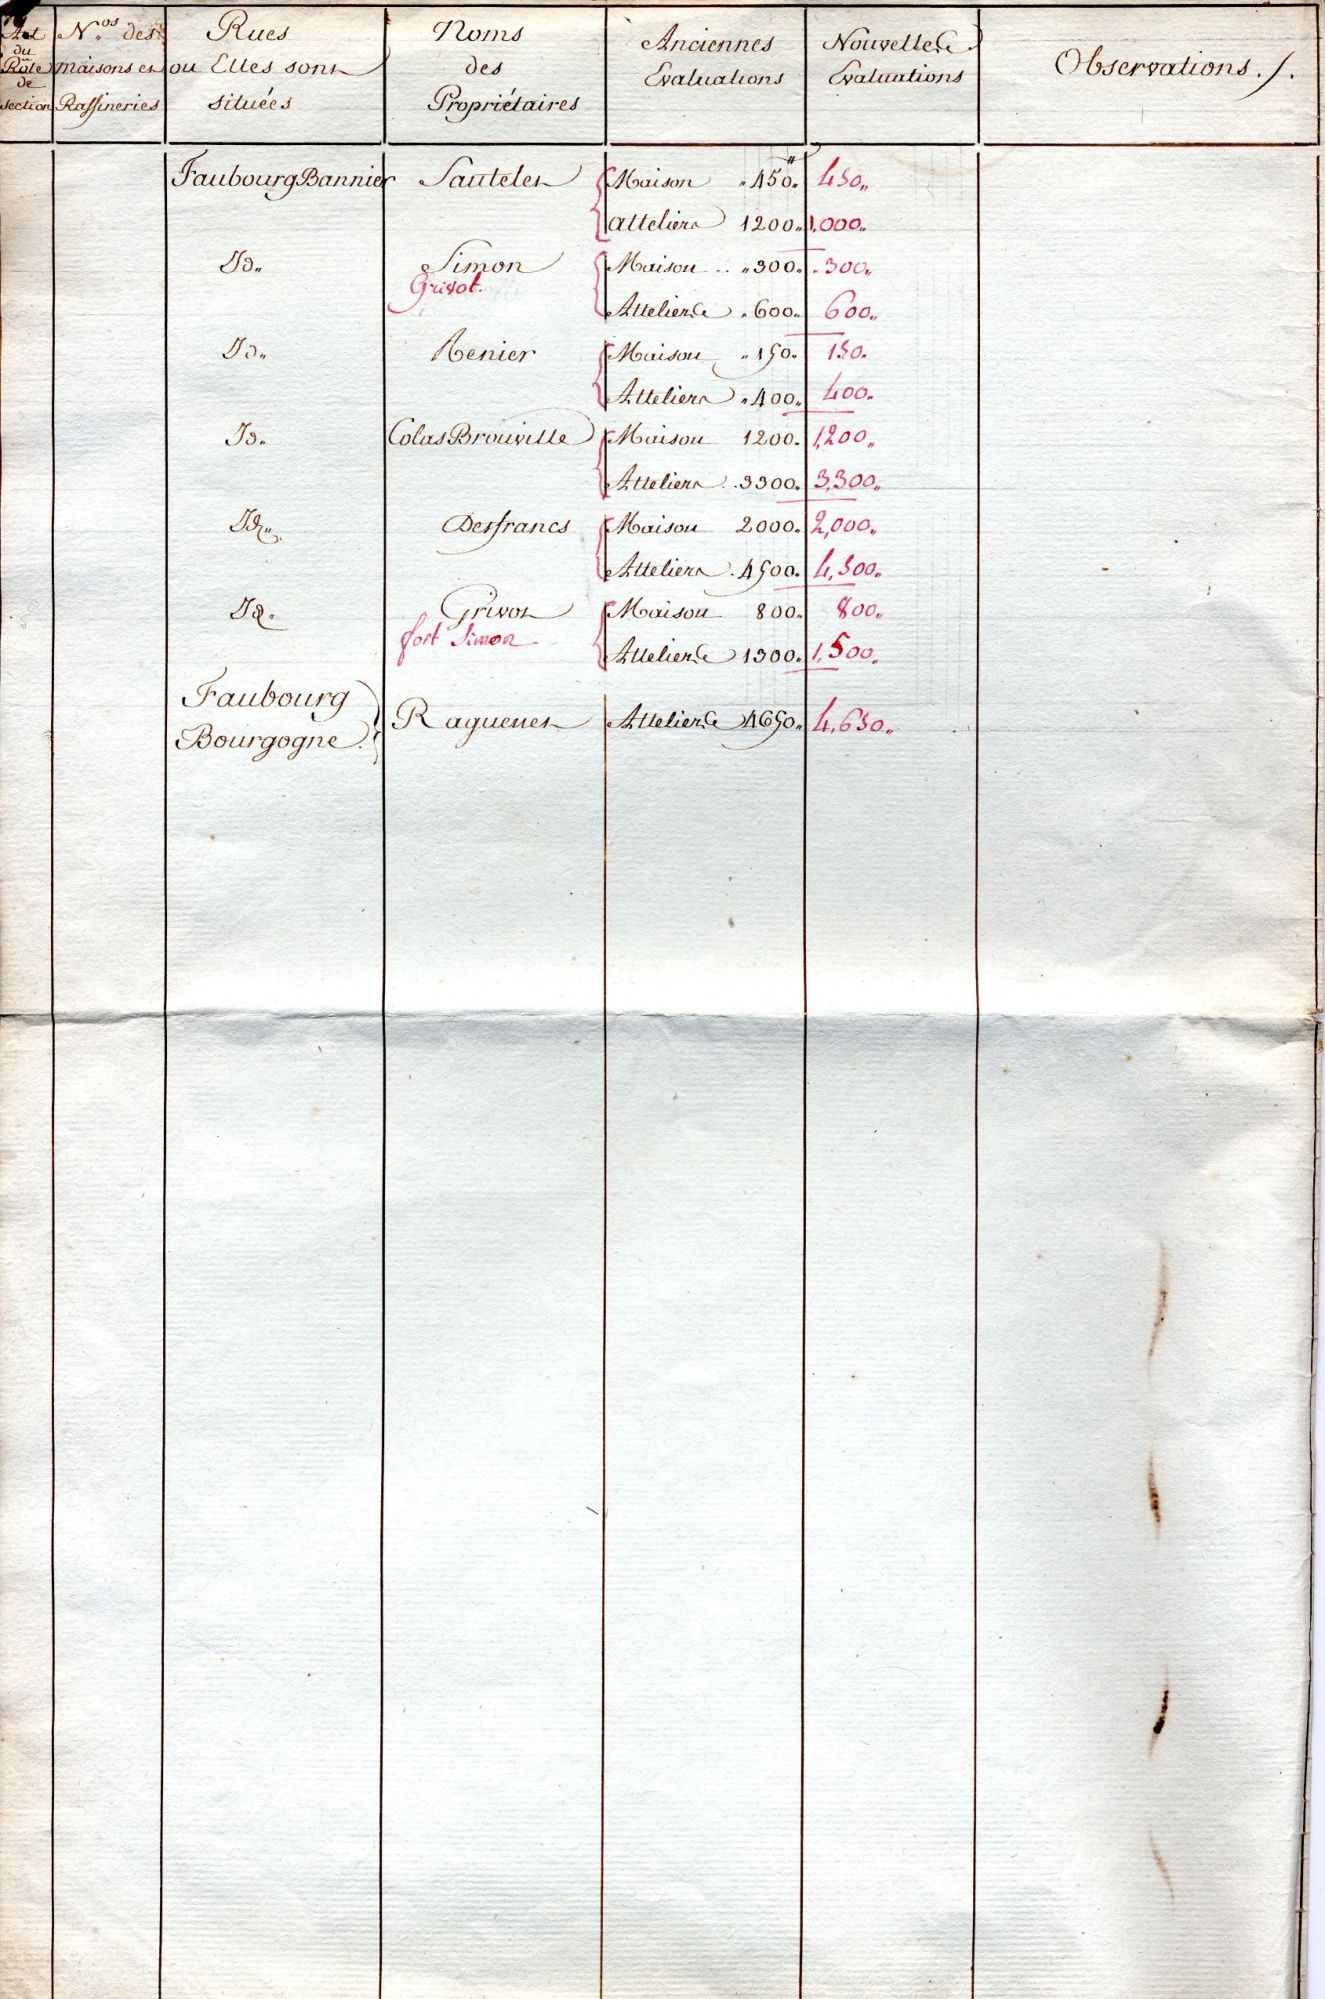 Art du Rôle de section
N.os des maisons et Raffineries
Rues ou Elles sont situées
Noms des Propriétaires
Anciennes Evaluations
Nouvelles Evaluations
Observations./.
Faubourg Bannier Sautelet Maison „450„ 450„
Atteliers 1200„ 1,000„
Id„ Simon Maison „300„ 300„
Grivot.
Atteliers „600„ 600„
Id„ Renier Maison „150„ 150.
Atteliers „400„ 400„
Id„ Colas Brouville Maison 1200„ 1,200„
Atteliers 3300„ 3,300„
Id„ Desfrancs Maison 2000„ 2,000„
Atteliers 4500„ 4,500„
Id„ Grivot Maison 800„ 800„
fort Simon
Atteliers 1500„ 1,500„
Faubourg Bourgogne Raguenet Atteliers 4650„ 4,650„